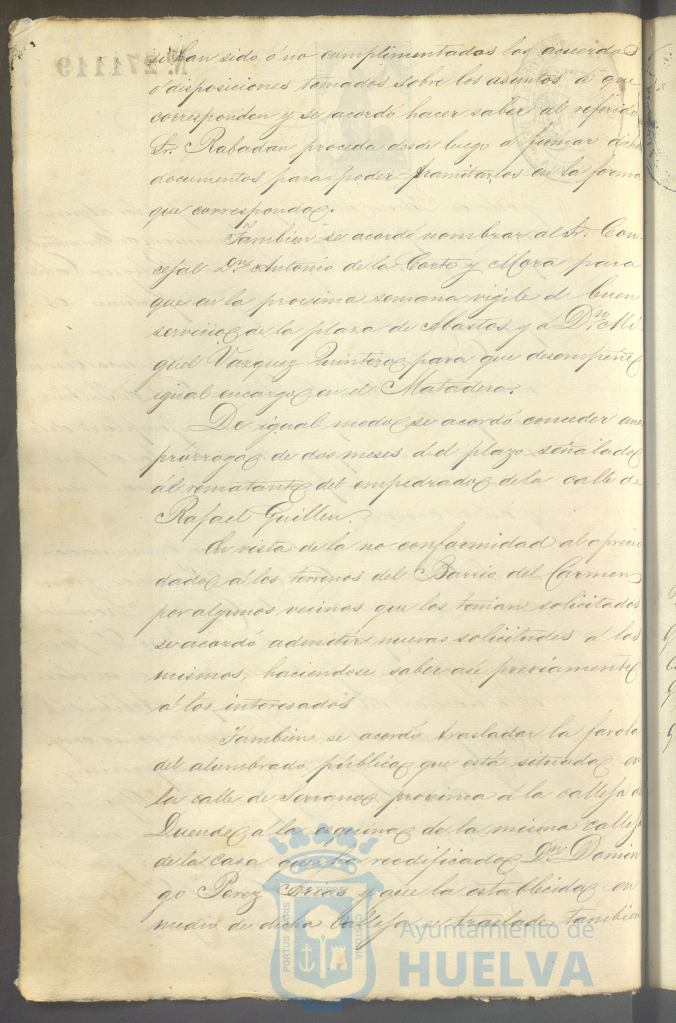 si han sido ó no cumplimentados los acuerdos
ó disposiciones tomados sobre los asuntos á que
corresponden y se acordó hacer saber al referido
Sr. Rabadan proceda desde luego á firmar dichos
documentos para poder tramitarlos en la forma
que corresponda.
Tambien se acordó nombrar al Sr. Con-
cejal Dn. Antonio de la Corte y Mora para
que en la proxima semana vigile el buen
servicio de la plaza de Abastos y á Dn. Mi
guel Vazquez Quintero para que desempeñe
igual encargo en el Matadero.
De igual modo se acordó conceder una
prórroga de dos meses del plazo señalado
al rematante del empedrado de la calle de
Rafael Guillen.
En vista de la no conformidad al aprecio
dado á los terrenos del Barrio del Carmen
por algunos vecinos que los tenian solicitados
se acordó admitir nuevas solicitudes á los
mismos, haciendose saber asi previamente
á los interesados
Tambien se acordó trasladar la farola
del alumbrado público que está situada en
la calle de Serrano proxima á la calleja de
Duende á la esquina de la misma calleja
de la casa que ha reedificado Dn. Domin
go Perez Arias y que la establecida en
medio de dicha calleja se traslade tambien
Nº 271119
PORTUS MARIS
ET TERRE
CUSTODIA
Ayuntamiento de
HUELVA